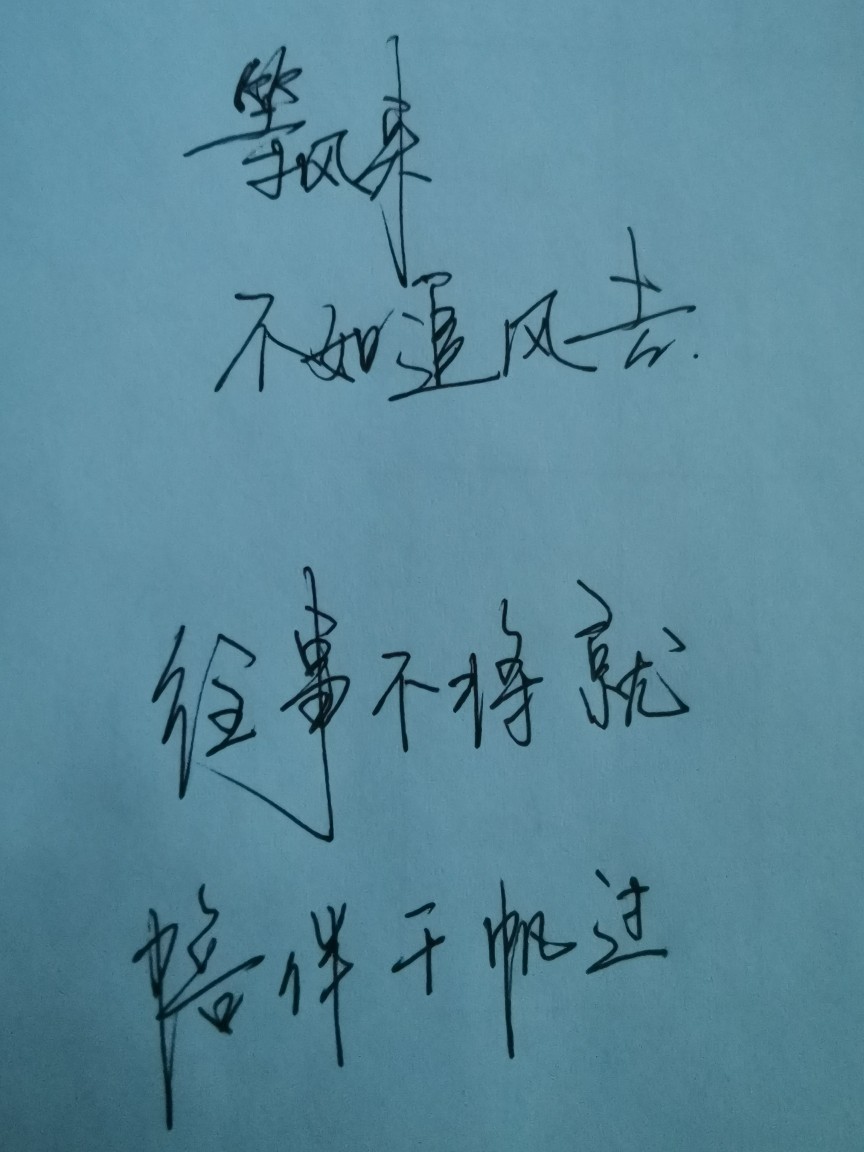 等风来
不如追风去.
往事不将就
陪伴千帆过